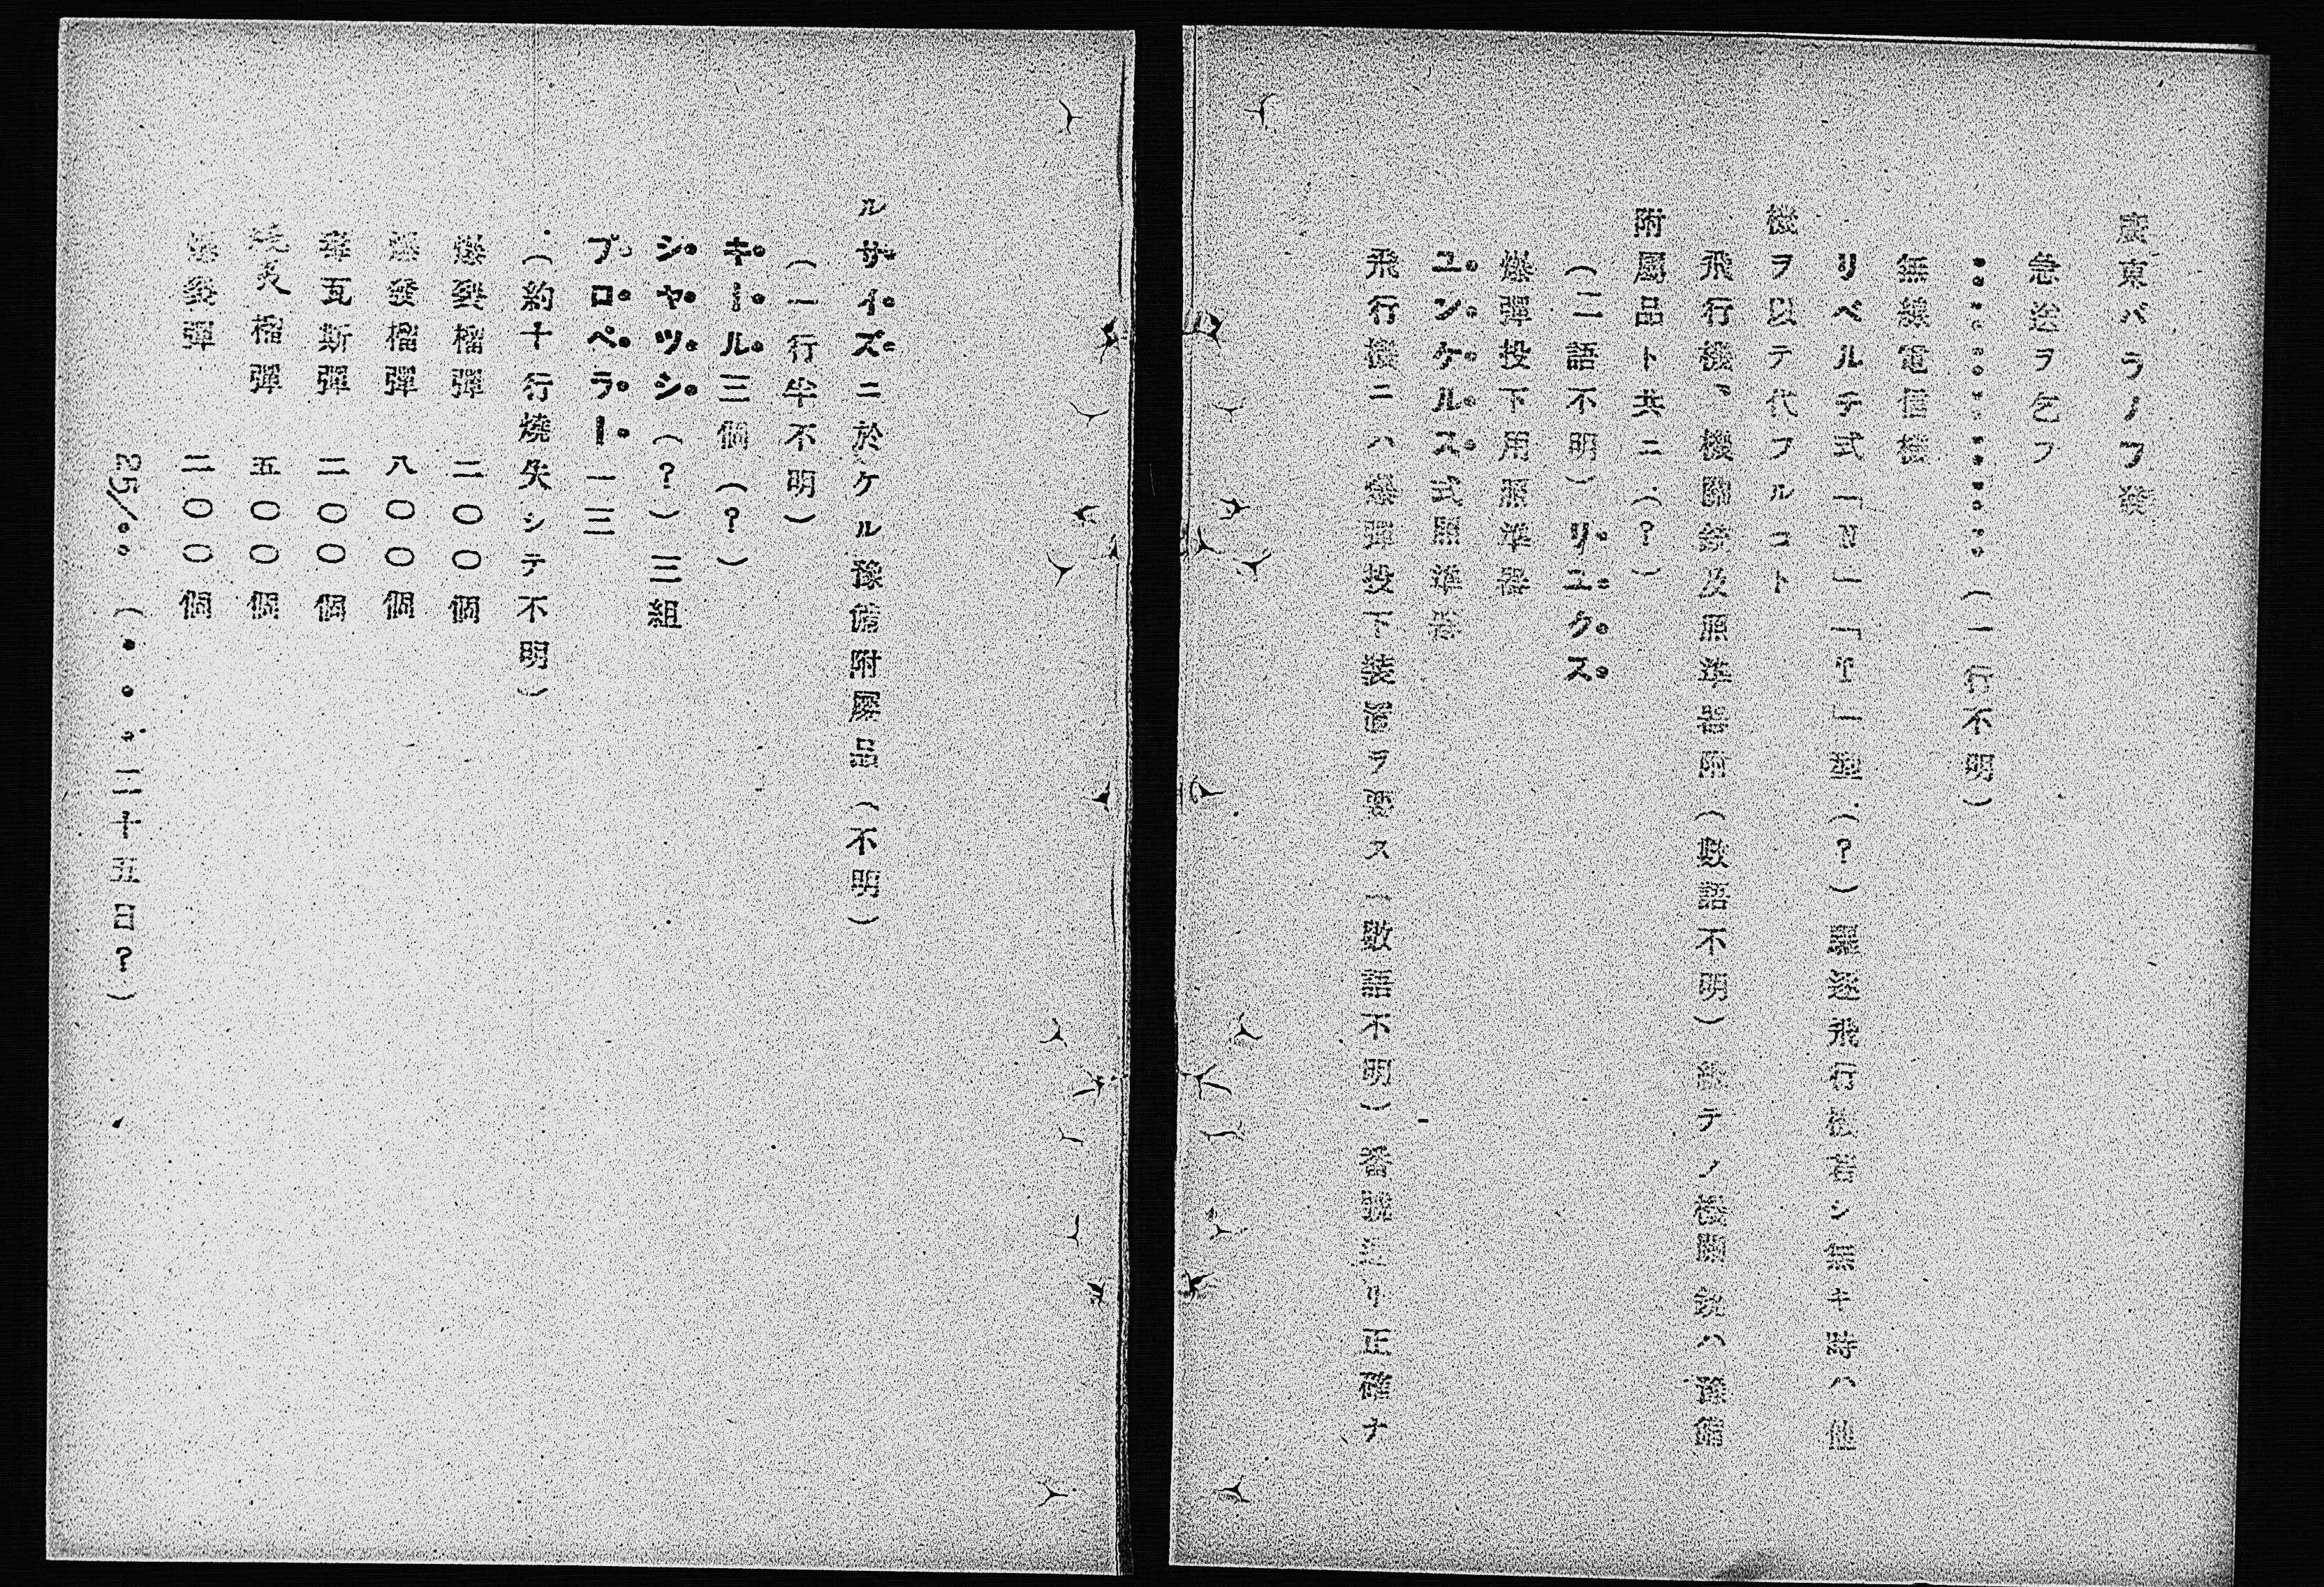 廣東バラノフ發
急送ヲ乞フ
・・・・・・・・・・・・・・（一行不明）
無線電信機
リベルテ式「」「」型（？）驅逐飛行機若シ無キ時ハ他
機ヲ以テ代フルコト
飛行機、機關銃及照準器附（數語不明）總テノ機關銃ハ豫備
附屬品ト共ニ（？）
（二語不明）リユクス
爆彈投下用照準器
ユンケルス式照準器
飛行機ニハ爆彈投下裝置ヲ要ス（數語不明）番號ヨリ正確ナ
ルサイズニ於ケル豫備附屬品（不明）
（一行半不明）
キール三個（？）
シヤツシ（？）三組
プロペラー一三
（約十行燒失シテ不明）
爆裂榴彈　二〇〇個
爆發榴彈　八〇〇個
毒瓦斯彈　二〇〇個
燒夷榴彈　五〇〇個
爆發彈　二〇〇個
25/・・（・・・二十五日？）